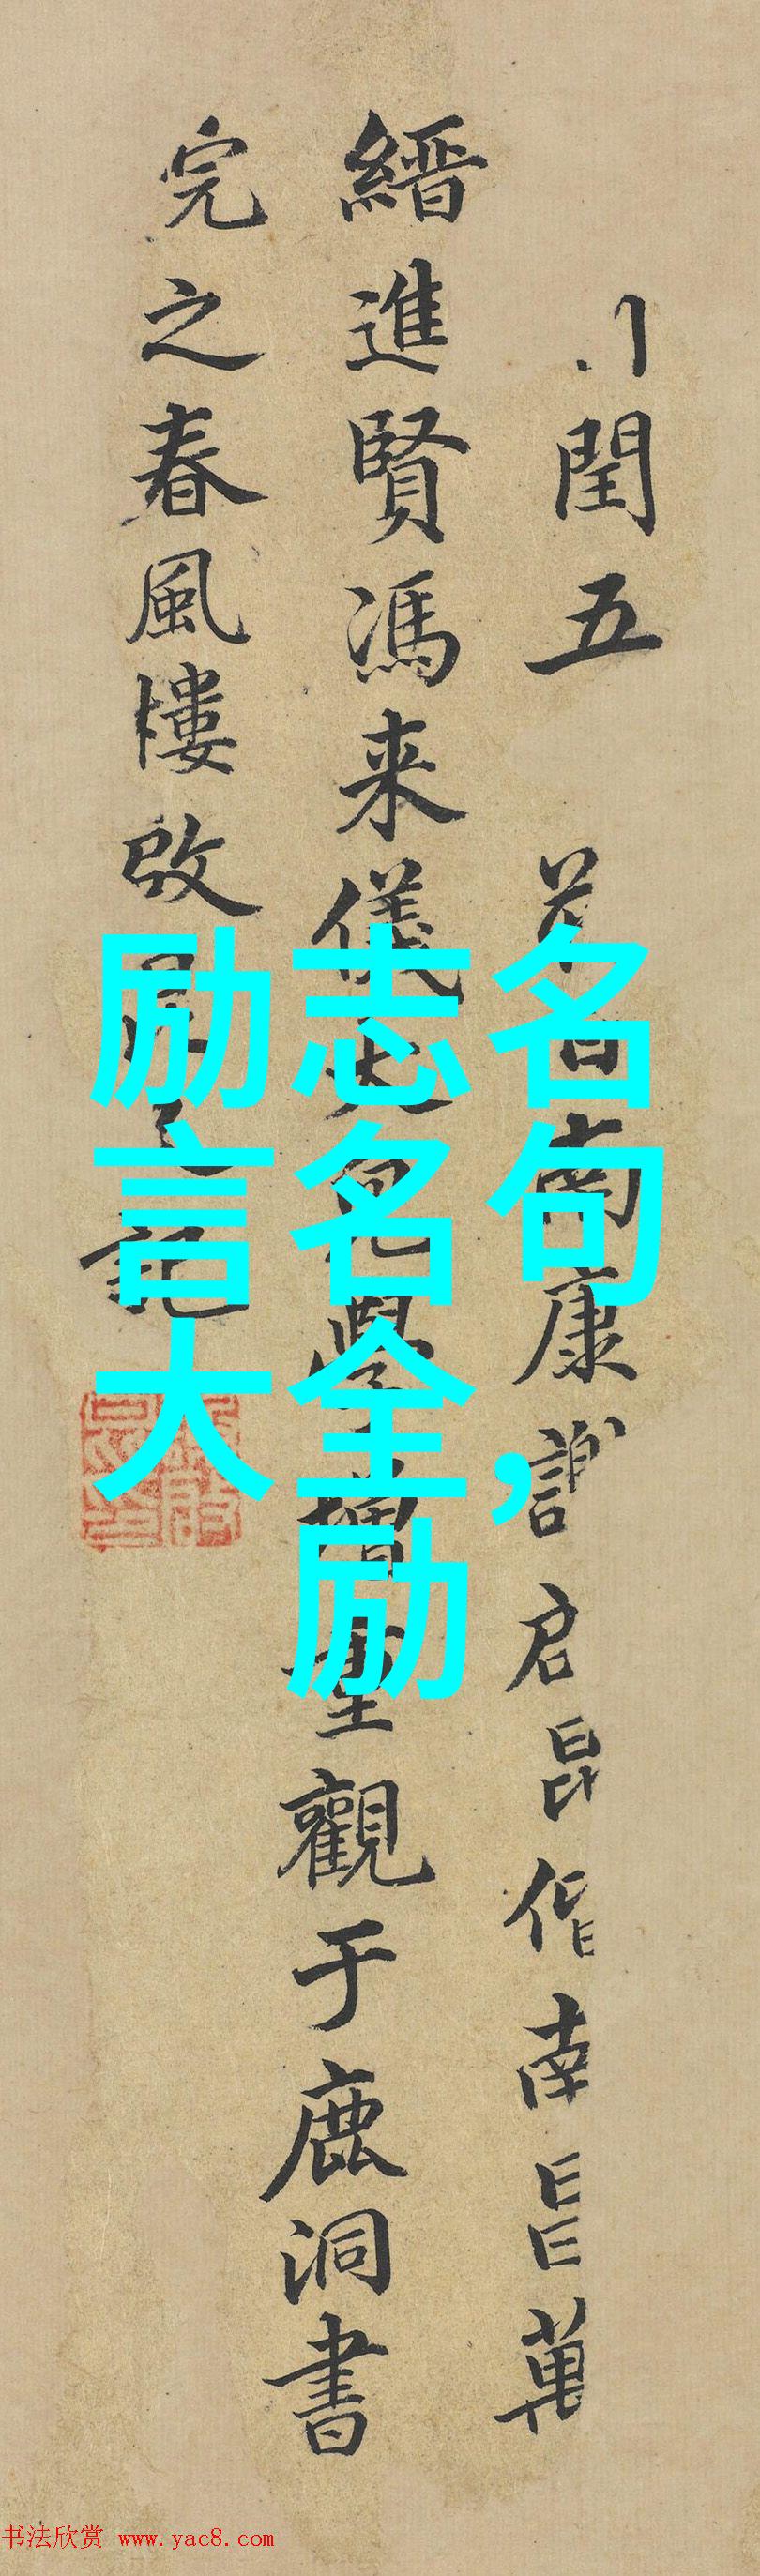 閏五南康謝启昆偕南昌萬
縉進賢馮来儀觀于鹿洞書
完之春風樓啟記
励志名
言名句
大全,
励
书法欣赏 www.yac8.com